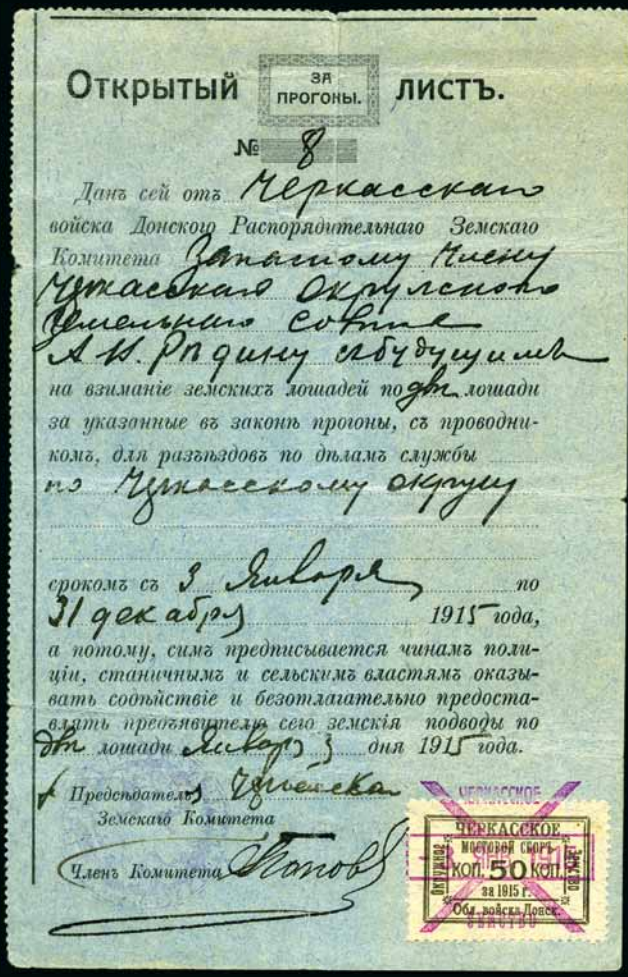 Открытый ЗА ПРОГОНЫ. ЛИСТЪ.
№ 8
Данъ сей отъ Черкасскаго
войска Донского Распорядительнаго Земскаго
Комитета Запасному Члену
Черкасскаго Окружного
Земельнаго Совта
А. И. Родину с будущимъ
на взиманіе земскихъ лошадей по двѣ лошади
за указанные въ законѣ прогоны, съ проводни-
комъ, для разъѣздовъ по дѣламъ службы
по Черкасскому округу
срокомъ съ 3 Января по
31 декабря 1915 года,
а потому, симъ предписывается чинамъ поли-
ціи, станичнымъ и сельскимъ властямъ оказы-
вать содѣйствіе и безотлагательно предоста-
влять предъявителю сего земскія подводы по
двѣ лошади Января 3 дня 1915 года.
Предсѣдатель
Земскаго Комитета
Членъ Комитета Попов
ЧЕРКАССКОЕ
ЧЕРКАССКОЕ
МОСТОВОЙ СБОРЪ
ОКРУЖНОЕ
КОП. 50 КОП.
ЗЕМСТВО
за 1915 г.
Обл. войска Донск.